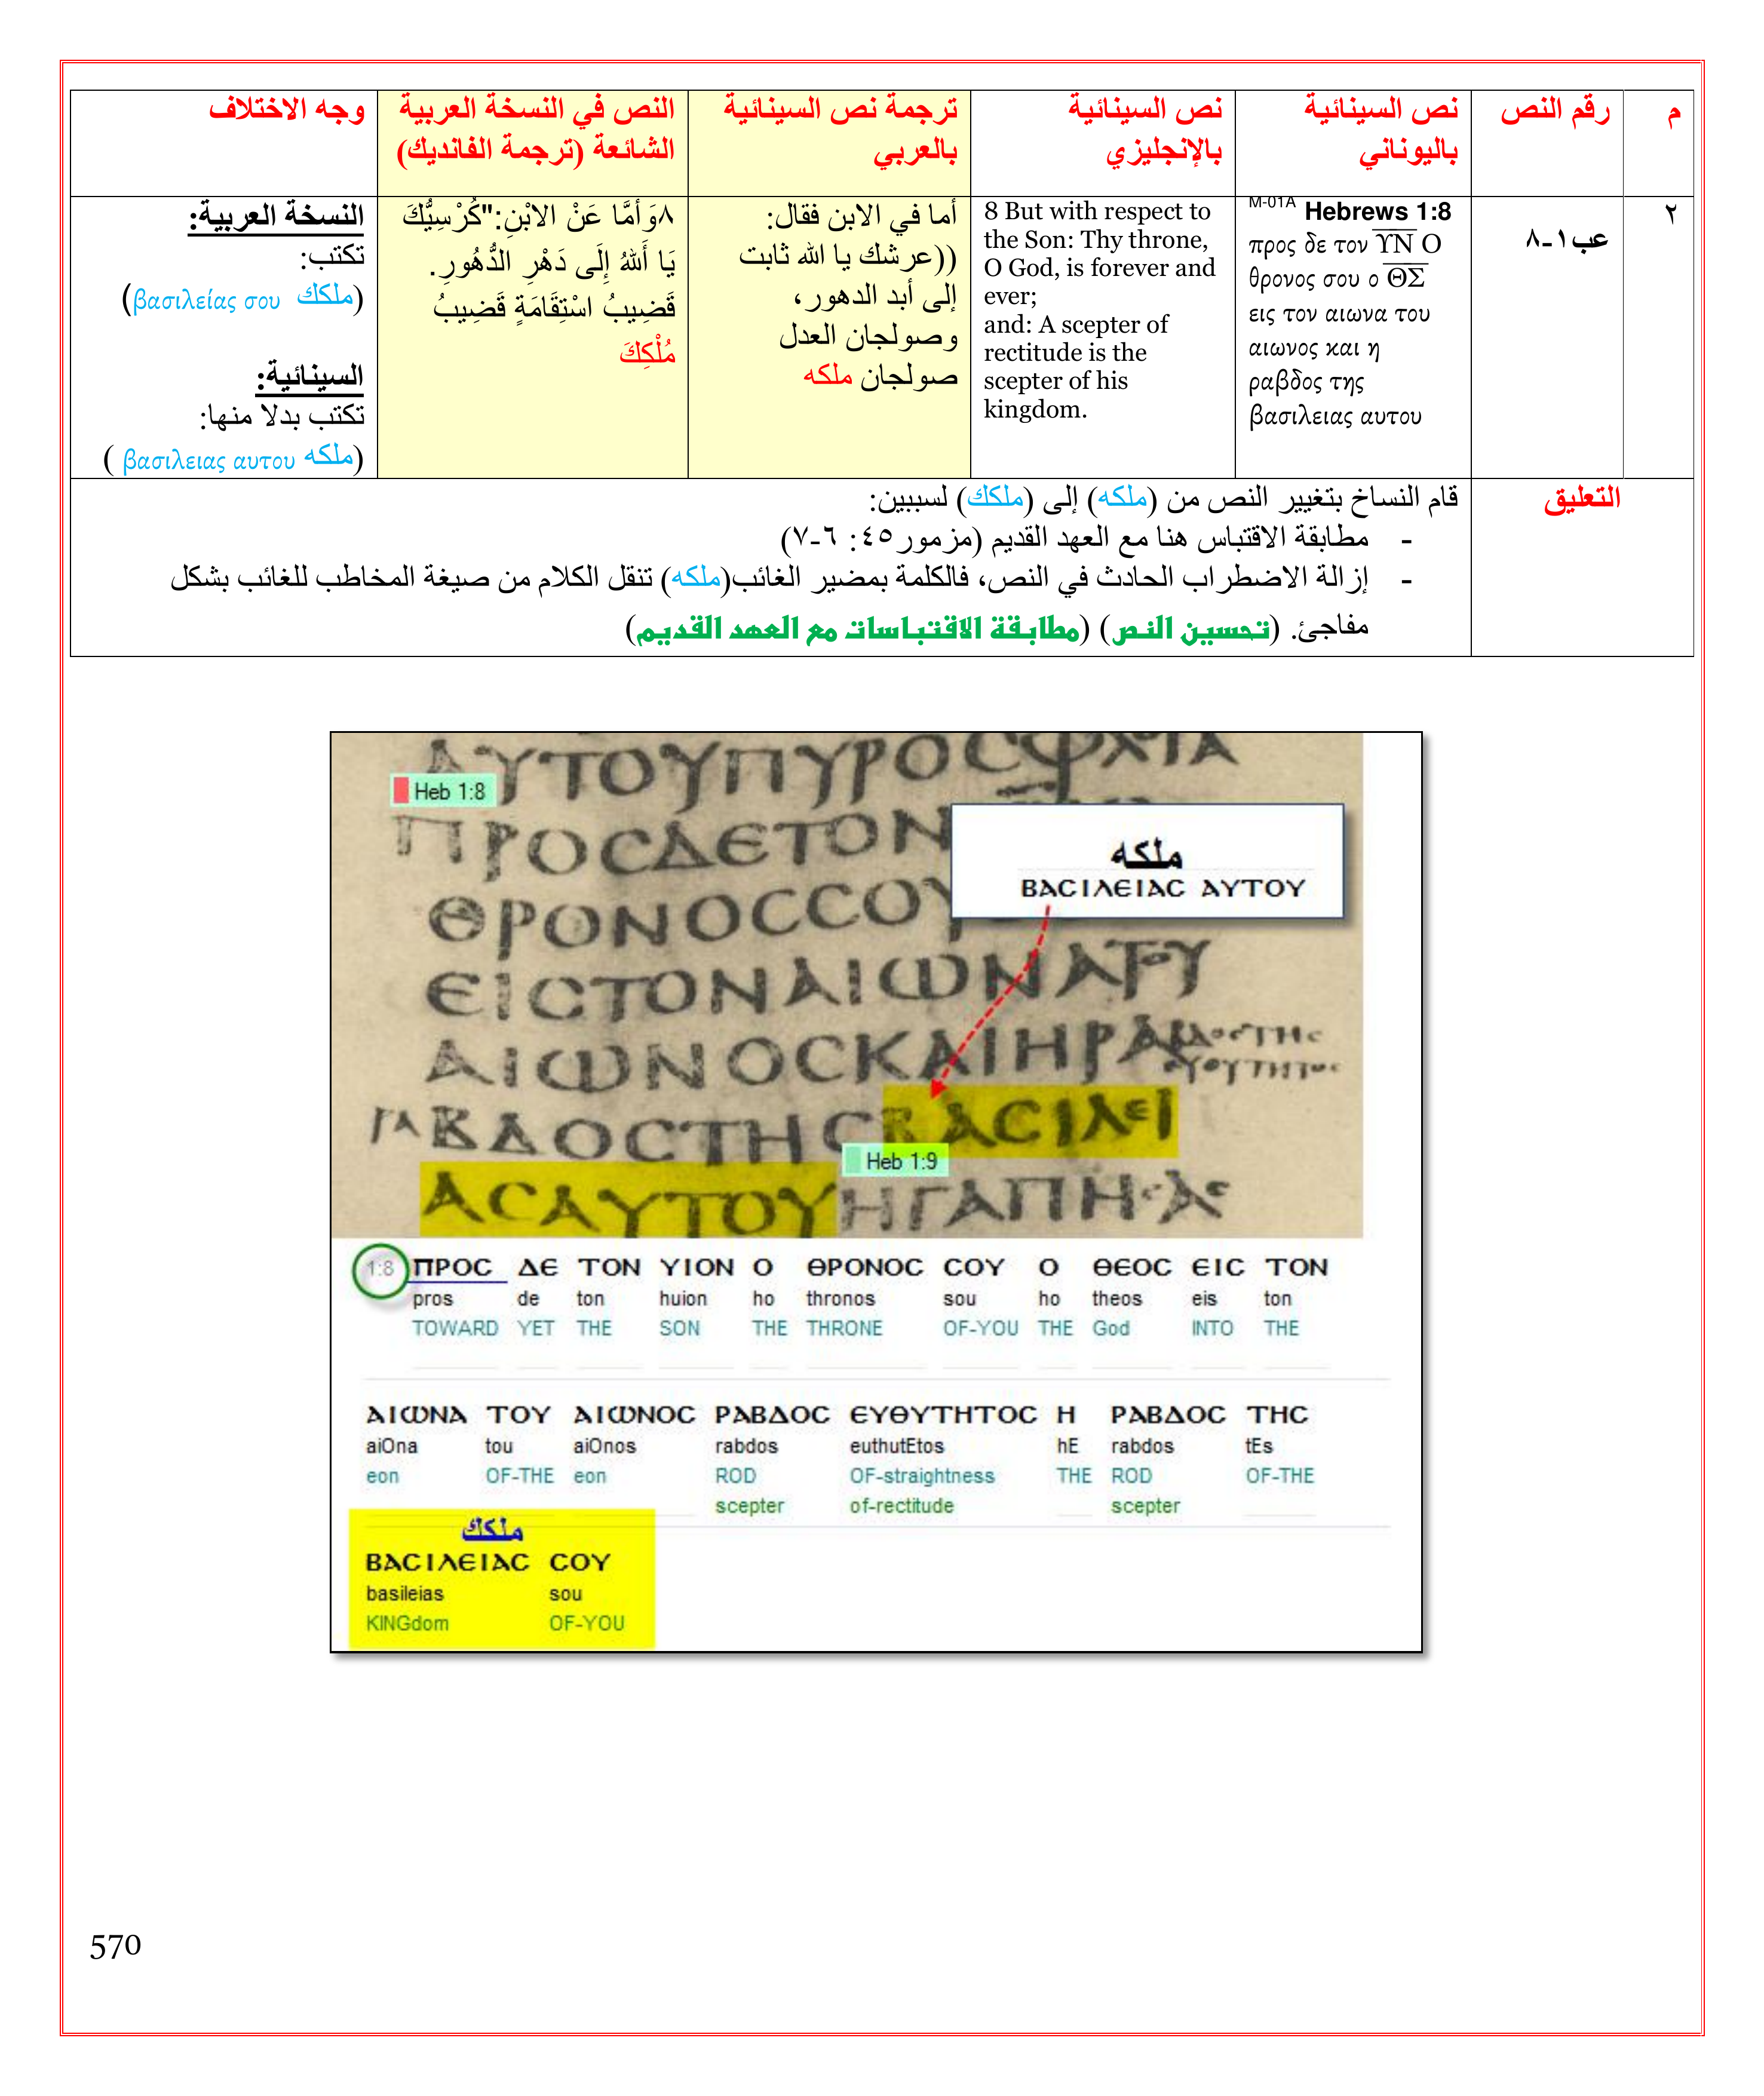 م
رقم النص
نص السينائية
باليوناني
نص السينائية
بالإنجليزي
ترجمة نص السينائية
بالعربي
النص في النسخة العربية
الشائعة (ترجمة الفانديك)
وجه الاختلاف
٢
عب١-٨
M-01A Hebrews 1:8
προς δε τον ΥΝ Ο
θρονος σου ο ΘΣ
εις τον αιωνα του
αιωνος και η
ραβδος της
βασιλειας αυτου
8 But with respect to
the Son: Thy throne,
O God, is forever and
ever;
and: A scepter of
rectitude is the
scepter of his
kingdom.
أما في الابن فقال:
((عرشك يا الله ثابت
إلى أبد الدهور،
وصولجان العدل
صولجان ملكه
٨وَأَمَّا عَنْ الابْنِ:"كُرْسِيُّكَ
يَا أَللهُ إِلَى دَهْرِ الدُّهُورِ.
قَضِيبُ اسْتِقَامَةٍ قَضِيبُ
مُلْكِكَ
النسخة العربية:
تكتب:
(ملكك βασιλείας σου)
السينائية:
تكتب بدلا منها:
(ملكه βασιλειας αυτου )
التعليق
قام النساخ بتغيير النص من (ملكه) إلى (ملكك) لسببين:
- مطابقة الاقتباس هنا مع العهد القديم (مزمور٤٥: ٦-٧)
- إزالة الاضطراب الحادث في النص، فالكلمة بمضير الغائب(ملكه) تنقل الكلام من صيغة المخاطب للغائب بشكل
مفاجئ. (تحسين النص) (مطابقة الاقتباسات مع العهد القديم)
ΑΥΤΟΥΠΥΡΟCΦΛΟΓΑ
Heb 1:8
ΠΡΟCΔΕΤΟΝ
ملكه
ΒΑCΙΛΕΙΑC ΑΥΤΟΥ
ΘΡΟΝΟCCΟΥ
ΕΙCΤΟΝΑΙΩΝΑΤΟΥ
ΑΙΩΝΟCΚΑΙΗΡΑ
ΒΔΟCΤΗCΒΑCΙΛΕΙ
Heb 1:9
ΑCΑΥΤΟΥΗΓΑΠΗ
1:8 ΠΡΟC ΔΕ ΤΟΝ ΥΙΟΝ Ο ΘΡΟΝΟC CΟΥ Ο ΘΕΟC ΕΙC ΤΟΝ
pros de ton huion ho thronos sou ho theos eis ton
TOWARD YET THE SON THE THRONE OF-YOU THE God INTO THE
ΑΙΩΝΑ ΤΟΥ ΑΙΩΝΟC ΡΑΒΔΟC ΕΥΘΥΤΗΤΟC Η ΡΑΒΔΟC ΤΗC
aiOna tou aiOnos rabdos euthutEtos hE rabdos tEs
eon OF-THE eon ROD OF-straightness THE ROD OF-THE
scepter of-rectitude scepter
ملكك
ΒΑCΙΛΕΙΑC CΟΥ
basileias sou
KINGdom OF-YOU
570